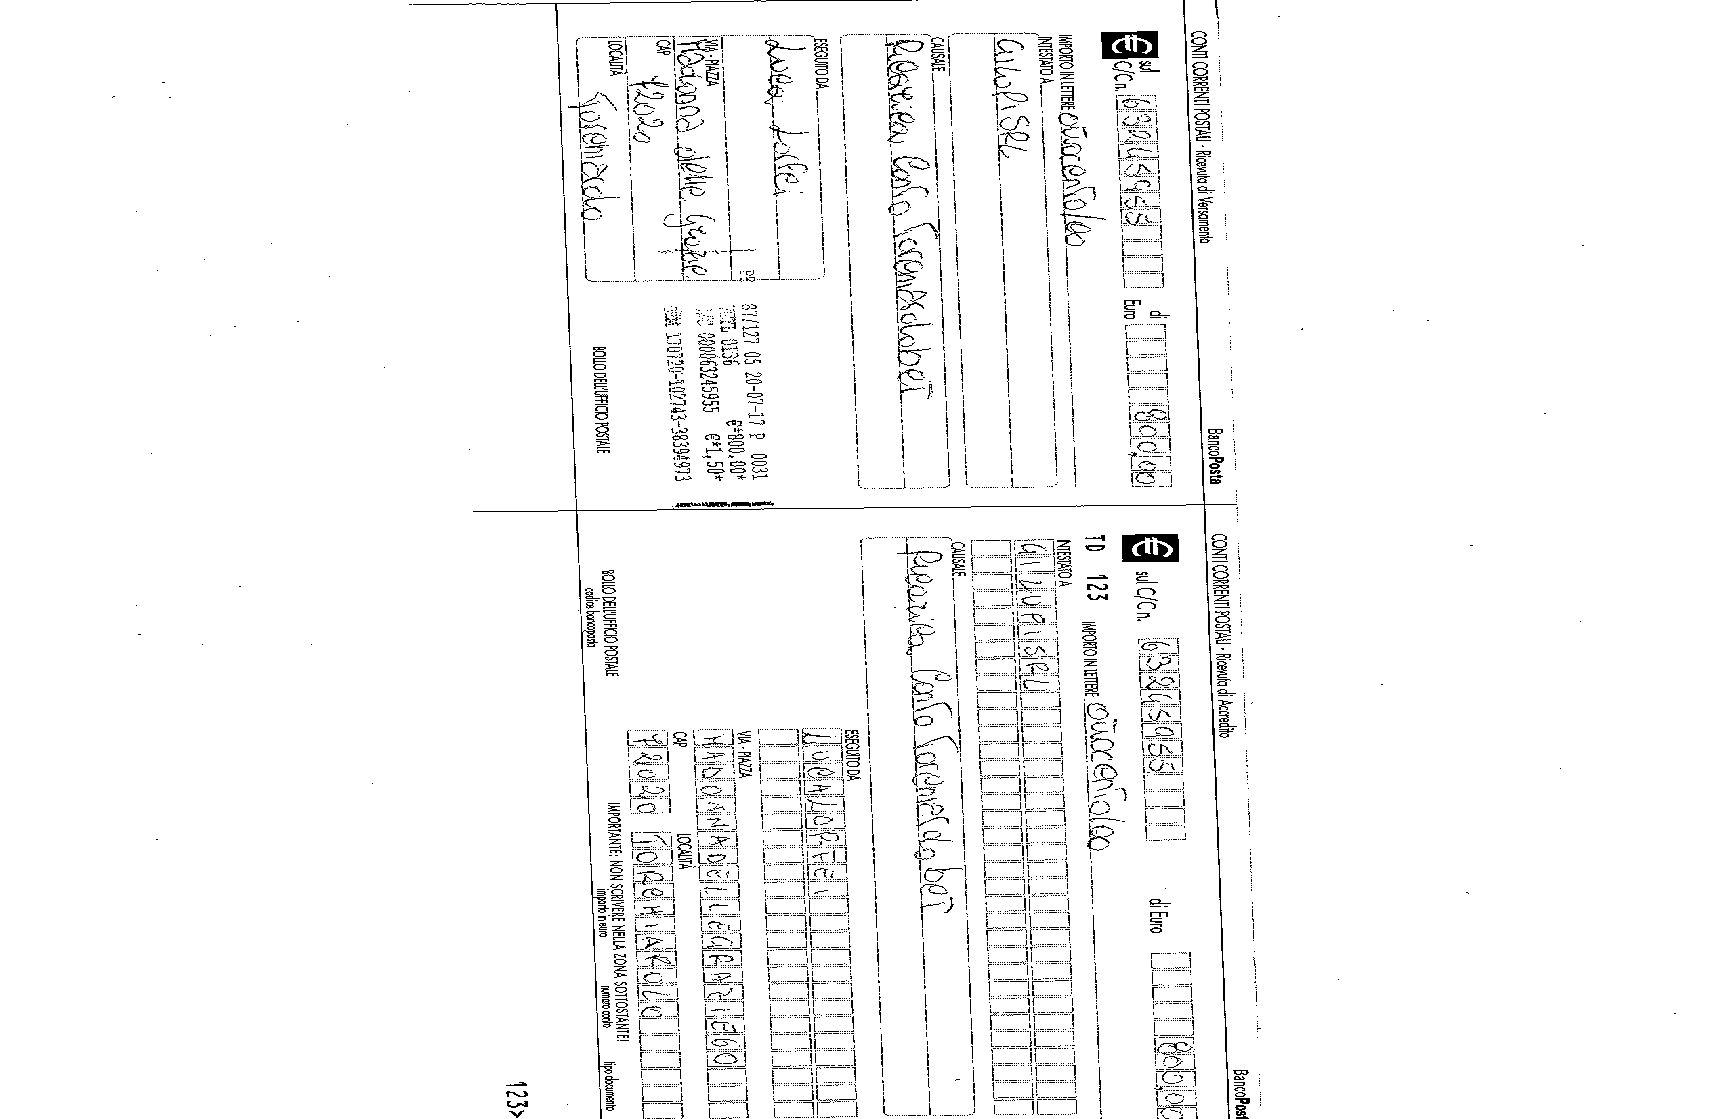 CONTI CORRENTI POSTALI - Ricevuta di Versamento
BancoPosta
€ sul C/C n. 63245955 di Euro 800,00
IMPORTO IN LETTERE ottocento/00
INTESTATO A
CAUSALE
Ricarica Conto
ESEGUITO DA
VIA - PIAZZA
Madonna delle Grazie
CAP
72020
LOCALITÀ
87/127 05 20-07-17 P 0031
0136 €*800,00*
000063245955 €*1,50*
170720-102743-38394973
BOLLO DELL'UFFICIO POSTALE
CONTI CORRENTI POSTALI - Ricevuta di Accredito
BancoPost
€ sul C/C n. 63245955 di Euro 800,00
TD 123 IMPORTO IN LETTERE ottocento/00
INTESTATO A
CAUSALE
Ricarica Conto
ESEGUITO DA
VIA - PIAZZA
MADONNA DELLE GRAZIE 60
CAP
LOCALITÀ
72020
BOLLO DELL'UFFICIO POSTALE
codice bancoposta
IMPORTANTE: NON SCRIVERE NELLA ZONA SOTTOSTANTE!
importo in euro
numero conto
tipo documento
123>